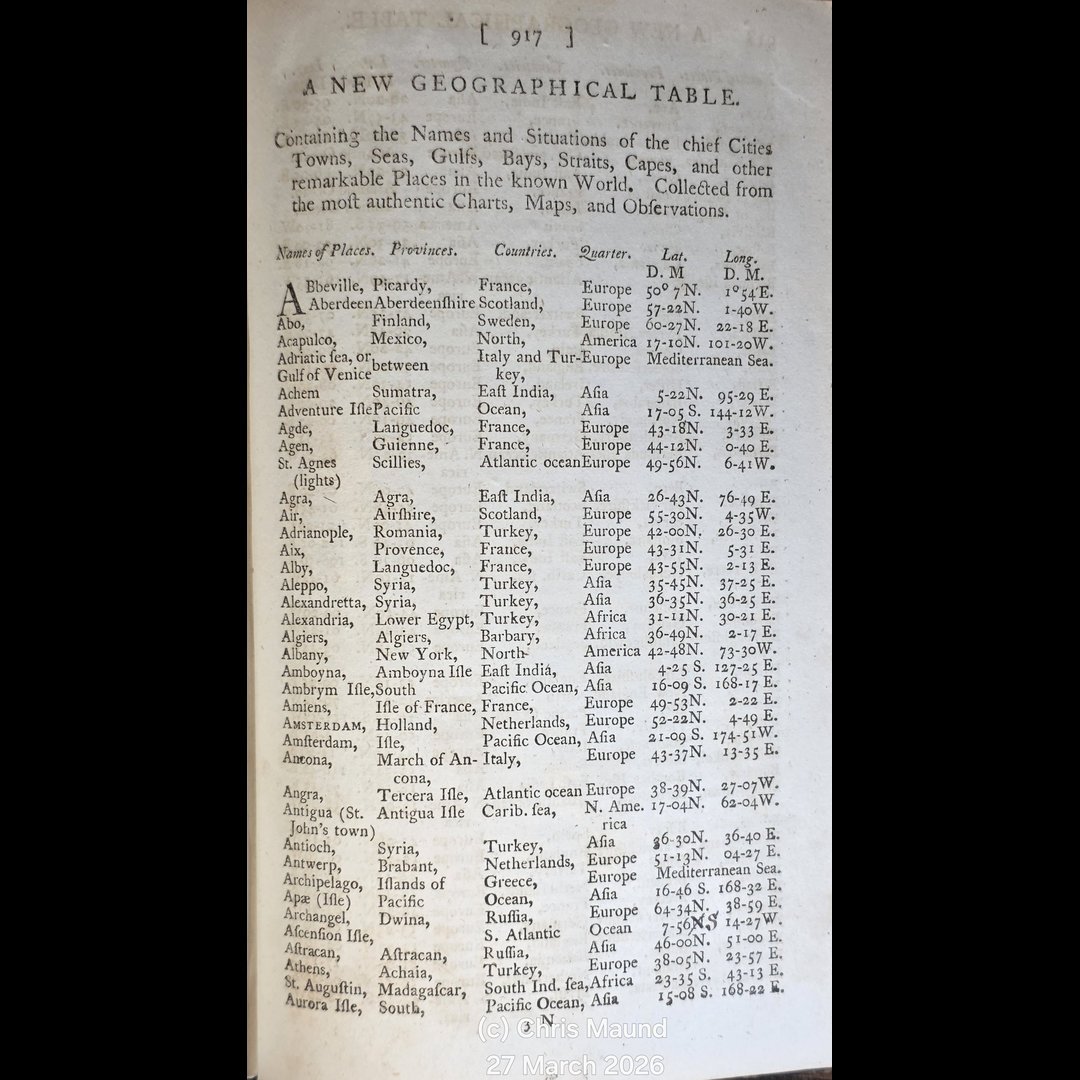 [ 917 ]
A NEW GEOGRAPHICAL TABLE.
Containing the Names and Situations of the chief Cities
Towns, Seas, Gulfs, Bays, Straits, Capes, and other
remarkable Places in the known World. Collected from
the moſt authentic Charts, Maps, and Obſervations.
Names of Places. Provinces. Countries. Quarter. Lat. Long.
D. M D. M.
ABbeville, Picardy, France, Europe 50° 7′N. 1°54′E.
Aberdeen Aberdeenſhire Scotland, Europe 57-22N. 1-40W.
Abo, Finland, Sweden, Europe 60-27N. 22-18 E.
Acapulco, Mexico, North, America 17-10N. 101-20W.
Adriatic ſea, or between Italy and Tur- Europe Mediterranean Sea.
Gulf of Venice key,
Achem Sumatra, Eaſt India, Aſia 5-22N. 95-29 E.
Adventure Iſle Pacific Ocean, Aſia 17-05 S. 144-12W.
Agde, Languedoc, France, Europe 43-18N. 3-33 E.
Agen, Guienne, France, Europe 44-12N. 0-40 E.
St. Agnes Scillies, Atlantic ocean Europe 49-56N. 6-41W.
(lights)
Agra, Agra, Eaſt India, Aſia 26-43N. 76-49 E.
Air, Airſhire, Scotland, Europe 55-30N. 4-35W.
Adrianople, Romania, Turkey, Europe 42-00N. 26-30 E.
Aix, Provence, France, Europe 43-31N. 5-31 E.
Alby, Languedoc, France, Europe 43-55N. 2-13 E.
Aleppo, Syria, Turkey, Aſia 35-45N. 37-25 E.
Alexandretta, Syria, Turkey, Aſia 36-35N. 36-25 E.
Alexandria, Lower Egypt, Turkey, Africa 31-11N. 30-21 E.
Algiers, Algiers, Barbary, Africa 36-49N. 2-17 E.
Albany, New York, North America 42-48N. 73-30W.
Amboyna, Amboyna Iſle Eaſt India, Aſia 4-25 S. 127-25 E.
Ambrym Iſle, South Pacific Ocean, Aſia 16-09 S. 168-17 E.
Amiens, Iſle of France, France, Europe 49-53N. 2-22 E.
AMSTERDAM, Holland, Netherlands, Europe 52-22N. 4-49 E.
Amſterdam, Iſle, Pacific Ocean, Aſia 21-09 S. 174-51W.
Ancona, March of An- Italy, Europe 43-37N. 13-35 E.
cona,
Angra, Tercera Iſle, Atlantic ocean Europe 38-39N. 27-07W.
Antigua (St. Antigua Iſle Carib. ſea, N. Ame. 17-04N. 62-04W.
John's town) rica
Antioch, Syria, Turkey, Aſia 36-30N. 36-40 E.
Antwerp, Brabant, Netherlands, Europe 51-13N. 04-27 E.
Archipelago, Iſlands of Greece, Europe Mediterranean Sea.
Apæ (Iſle) Pacific Ocean, Aſia 16-46 S. 168-32 E.
Archangel, Dwina, Ruſſia, Europe 64-34N. 38-59 E.
Aſcenſion Iſle, S. Atlantic Ocean 7-56N S 14-27W.
Aſtracan, Aſtracan, Ruſſia, Aſia 46-00N. 51-00 E.
Athens, Achaia, Turkey, Europe 38-05N. 23-57 E.
St. Auguſtin, Madagaſcar, South Ind. ſea, Africa 23-35 S. 43-13 E.
Aurora Iſle, South, Pacific Ocean, Aſia 15-08 S. 168-22 E.
3 N
(c) Chris Maund
27 March 2026